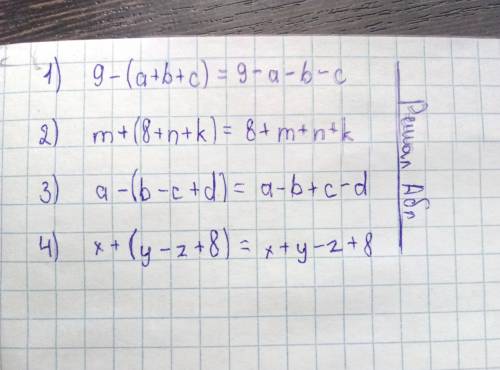 1) 9-(a+b+c) = 9-a-b-c
2) m+(8+n+k) = 8+m+n+k
3) a-(b-c+d) = a-b+c-d
4) x+(y-z+8) = x+y-z+8
Решал Абл